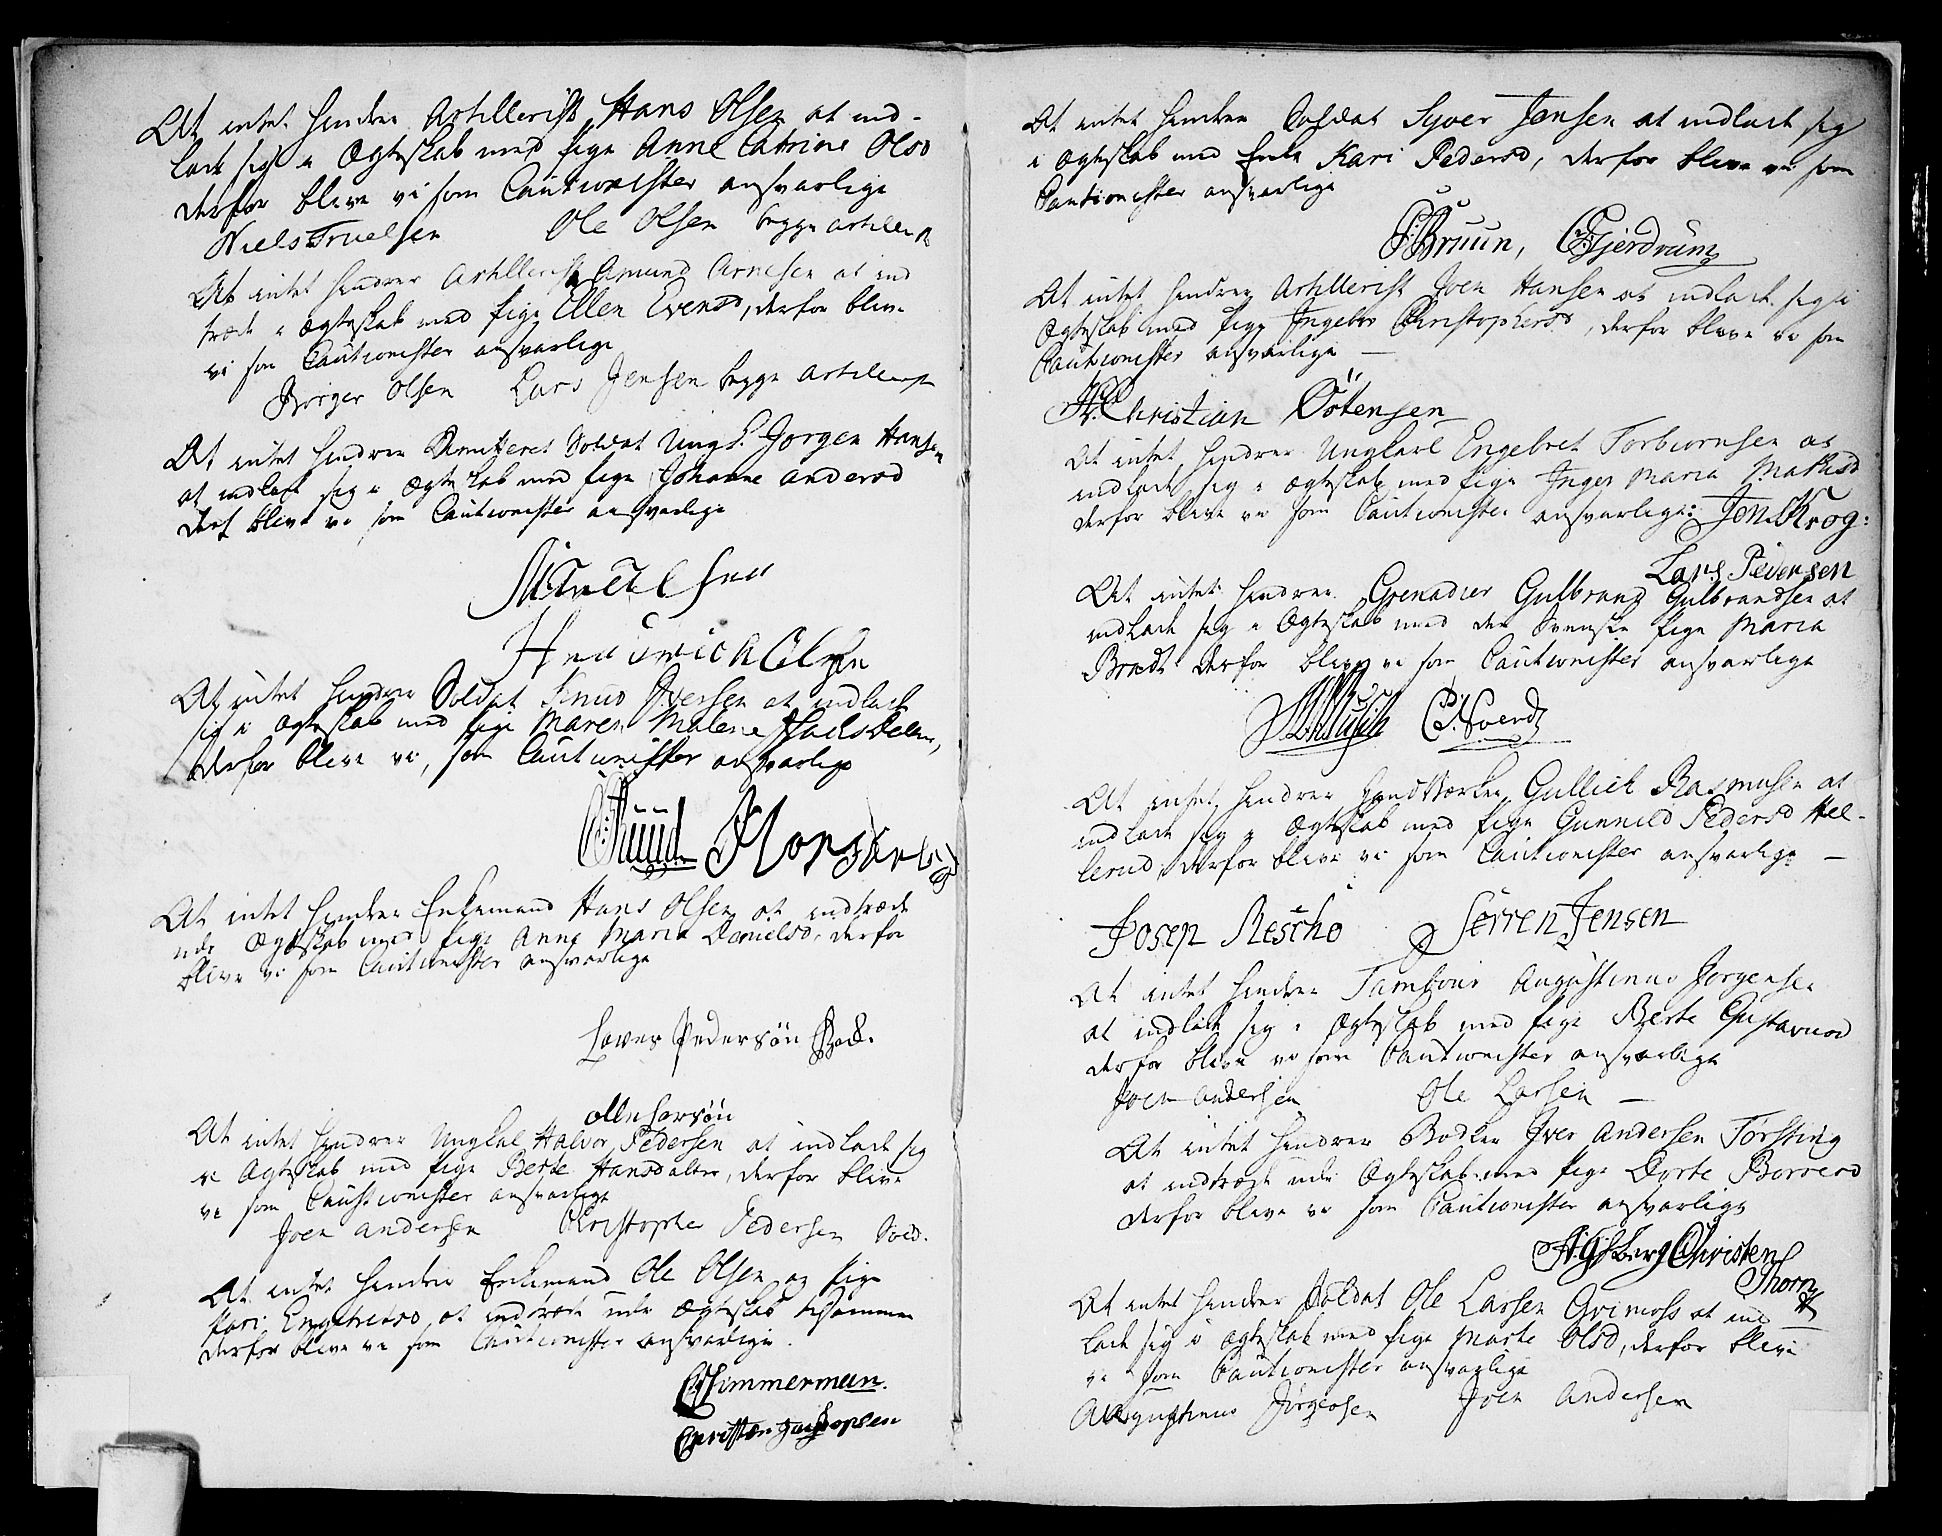 At intet hindrer Artillerist Hans Olsen at ind-
lade sig i Ægteskab med Pige Anne Catrine Olsd
derfor blive vi som Cautionister ansvarlige
Niels Truelsen Ole Olsen begge Artillerist
At intet hindrer Artillerist Amund Arnesen at ind
træde i Ægteskab med Pige Ellen Evensd, derfor blive
vi som Cautionister ansvarlige
Børger Olsen Lars Jensen begge Artillerist
At intet hindrer Soldat Ungk. Jørgen Hansen
at indlade sig i Ægteskab med Pige Johanne Andersd
derf blive vi som Cautionister ansvarlige
Olsen
At intet hindrer Soldat Knud Iversen at indlade
sig i Ægteskab med Pige Maren Malene
derfor blive vi, som Cautionister ansvarlige
Ruud
At intet hindrer Enkemand Hans Olsen at indtræde
udi Ægteskab med Pige Anne Maria Danielsd. derfor
blive vi som Cautionister ansvarlige
Laves Pedersøn
At intet hindrer Ungkal Halvor Pedersen at indlade sig
i Ægteskab med Pige Berte Hansdatter, derfor blive
vi som Cautionister ansvarlige
Joen Andersen Christopher Pedersen Sold.
At intet hindrer Enkemand Ole Olsen og Pige
Kari Engebretsd, at indtræde udi Ægteskab tilsammen
derfor blive vi som Cautionister ansvarlige.
Zimmerman.
At intet hindrer Soldat Syver Jensen at indlade sig
i Ægteskab med Enke Kari Pedersd, derfor blive vi som
Cautionister ansvarlige
Bruun, Gjerdrum
At intet hindrer Artillerist Joen Hansen at indlade sig i
Ægteskab med Pige Ingebor Christophersd, derfor blive vi som
Cautionister ansvarlige —
Christian Östensen
At intet hindrer Ungkarl Engebret Torbiørnsen at
indlade sig i Ægteskab med Pige Inger Maria Mathisd
derfor blive vi som Cautionister ansvarlige: Jens Krog:
Lars Pedersen
At intet hindrer Grenadier Gulbrand Gulbrandsen at
indlade sig i Ægteskab med den Svenske Pige Maria
Bradt derfor blive vi som Cautionister ansvarlige
At intet hindrer Handtværker Gullich Rasmusen at
indlade sig i Ægteskab med Pige Gunnild Pedersd Hel-
lerud, derfor blive vi som Cautionister ansvarlige —
Josep Rescho Sørren Jensen
At intet hindrer Tambour Augustinus Jørgensen
at indlade sig i Ægteskab med Pige Berte Gustavusd
derfor blive vi som Cautionister ansvarlige
Joen Andersen Ole Larsen —
At intet hindrer Bødker Iver Andersen Torsting
at indtræde udi Ægteskab med Pige Dorte Borresd
derfor blive vi som Cautionister ansvarlige
Christen
Thorn
At intet hindrer Soldat Ole Larsen Grimoss at ind
lade sig i Ægteskab med Pige Marte Olsd, derfor blive
vi som Cautionister ansvarlige
Augustinus Jörgensen Joen Andersen